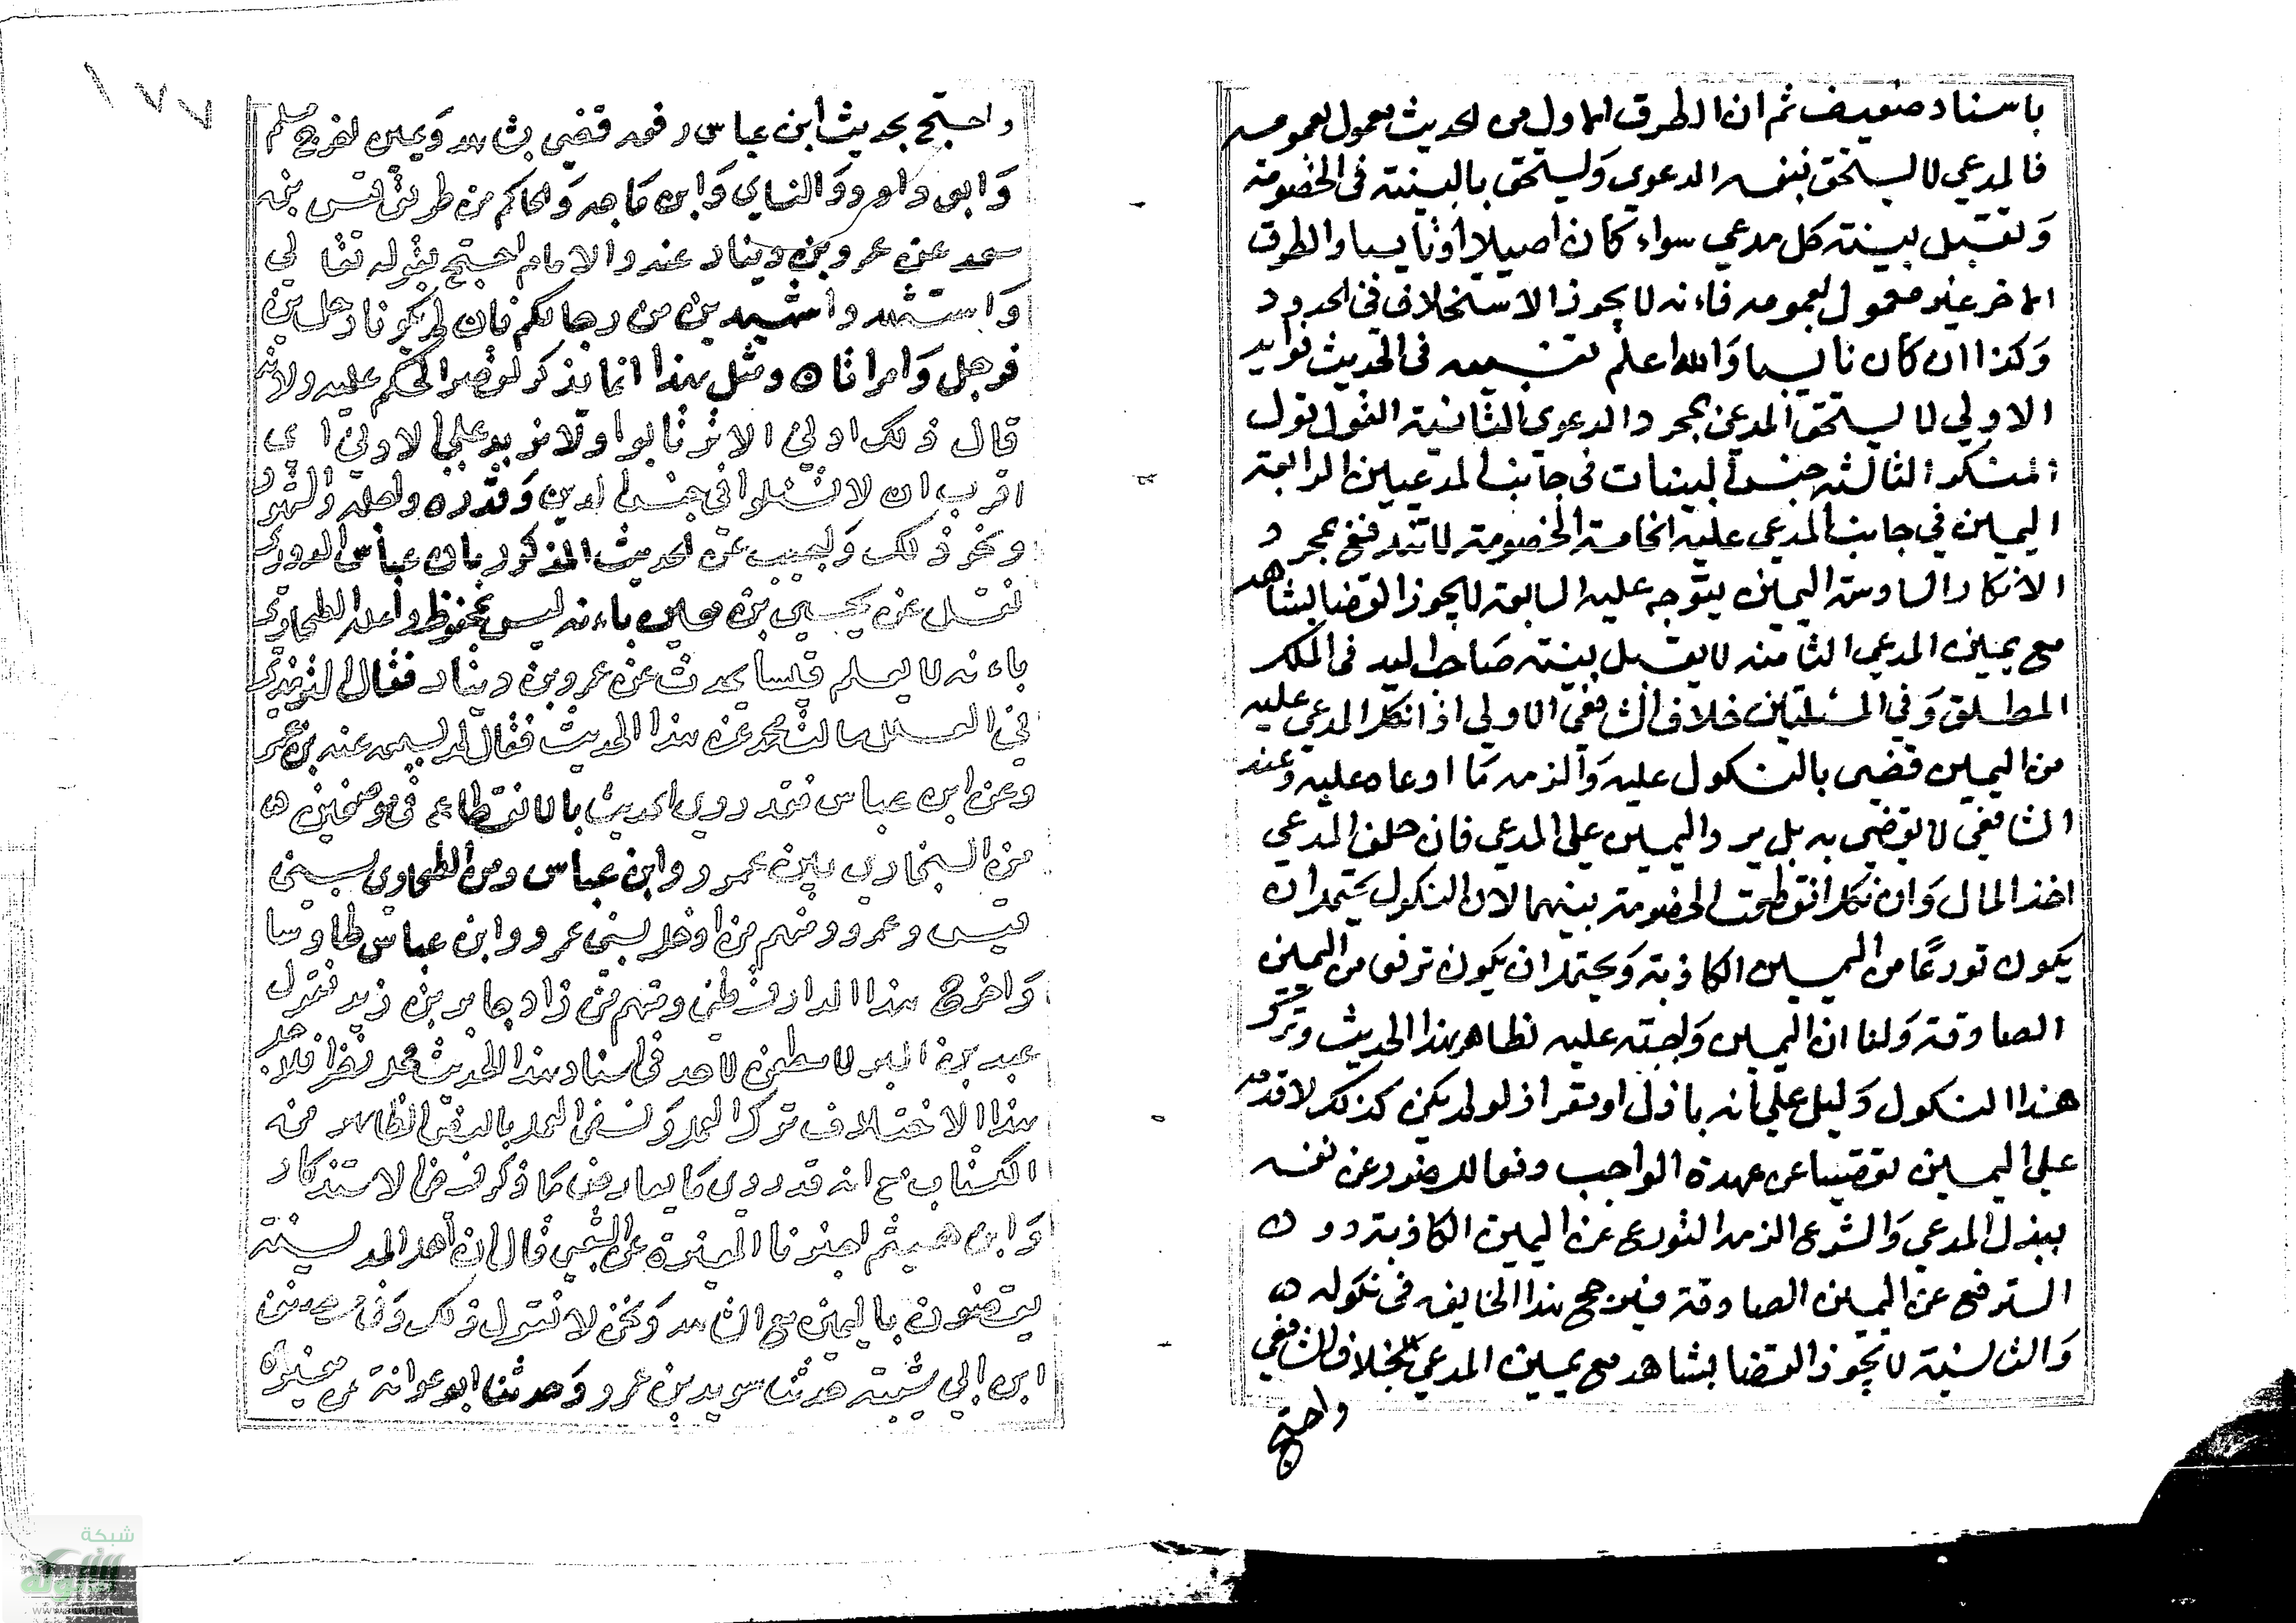 باسناد ضعيف ثم ان الطرف الاول من الحديث معمول لعمومه
فالمدعي لا يستحق بنفسه الدعوي وَيستحق بالبينة في الخصومة
وَتقبل بينة كل مدعي سواء كان اصيلا او نايبا والطرف
الاخر غير معمول لعمومه فانه لا يجوز الاستحلاف في الحدود
وَكذا ان كان نايبا وَالله اعلم تنبيه في الحديث فوايد
الاولي لا يستحق المدعي بمجرد الدعوي الثانية القول قول
المنكر الثالثة جنس البينات في جانب المدعيين الرابعة
اليمين في جانب المدعي عليه الخامسة الخصومة لا تندفع بمجرد
الانكار السادسة اليمين يتوجه عليه السابعة لا يجوز القضا بشاهد
مع يمين المدعي الثامنة لا يقبل بينة صَاحب اليد في الملك
المطلق وَفي المسئلتين خلاف الشافعي الاولي اذا نكل المدعي عليه
من اليمين قضي بالنكول عليه وَالزمه مَا ادعاه عليه وعند
الشافعي لا يقضي به بل يرد اليمين علي المدعي فان حلف المدعي
اخذ المال وَان نكل انقطعت الخصومة بينهما لان النكول يحتمل ان
يكون تورعًا من اليمين الكاذبة وَيحتمل ان يكون ترفعا من اليمين
الصادقة وَلنا ان اليمين وَاجبة عليه لظاهر هذا الحديث وترك
هذا النكول دَليل علي انه باذل او مقر اذ لو لم يكن كذلك لاقدم
علي اليمين تقصيا عن عهدة الواجب ودفعا للضرر عن نفسه
ببذل المدعي وَالشرع الزمه التورع عن اليمين الكاذبة دون
الترفع عن اليمين الصادقة فيرجح هذا الجانب في نكوله ه
وَالثانية لا يجوز القضا بشاهد مع يمين المدعي بخلاف الشافعي
واحتج
١٧٧
واحتج بحديث ابن عباس رفعه قضي بشاهد وَيمين اخرجه مسلم
وَابو داود وَالنساي وَابن مَاجه وَالحاكم من طريق قيس بن
سعد عن عمرو بن دينار عنه والامام احتج بقوله تعالي
وَاستشهدوا شهيدين من رجالكم فان لم يكونا رجلين
فرجل وَامراتان ومثل هذا انما يذكر لقصر الحكم عليه ولانه
قال ذلك ادني الا ترتابوا ولا مزيد علي الادني اي
اقرب ان لا تشكوا في جنس الدين وَقدره واجله والشهود
ونحو ذلك وَيجيب عن الحديث المذكور بان عباس الدوري
نقل عن يحيي بن معين بانه ليس بمحفوظ واعله الطحاوي
بانه لا يعلم قيسا يحدث عن عمرو بن دينار فقال الترمذي
في العلل سالت محمد عن هذا الحديث فقال لم يسمعه عنه بن عمر
وعن ابن عباس فقد روي الحديث بالانقطاع في موضعين ه
من البخاري بين عمرو وابن عباس ومن الطحاوي بين
قيس وعمرو ومنهم من ادخل بين عمرو وابن عباس طاوسا
وَاخرج هذا الدارقطني ومنهم من زاد جابر بن زيد فقول
عبد بن البر لا مطعن لاحد في اسناد هذا الحديث محل نظر فلاجل
هذا الاختلاف ترك العمل وَنفي العمل بالنص الظاهر من
الكتاب مع انه قد روي مَا يعارض مَا ذكر في الاستذكار
وَابن هيثم اخبرنا المغيرة عن الشعبي قال ان اهل المدينة
يقضون بااليمين مع الشاهد وَنحن لا نقول ذلك وَفي مصنف
ابن ابي شيبة حدثنا سويد بن عمرو وَحدثنا ابو عوانة عن مغيرة
شبكة
الألوكة
www.alukah.net